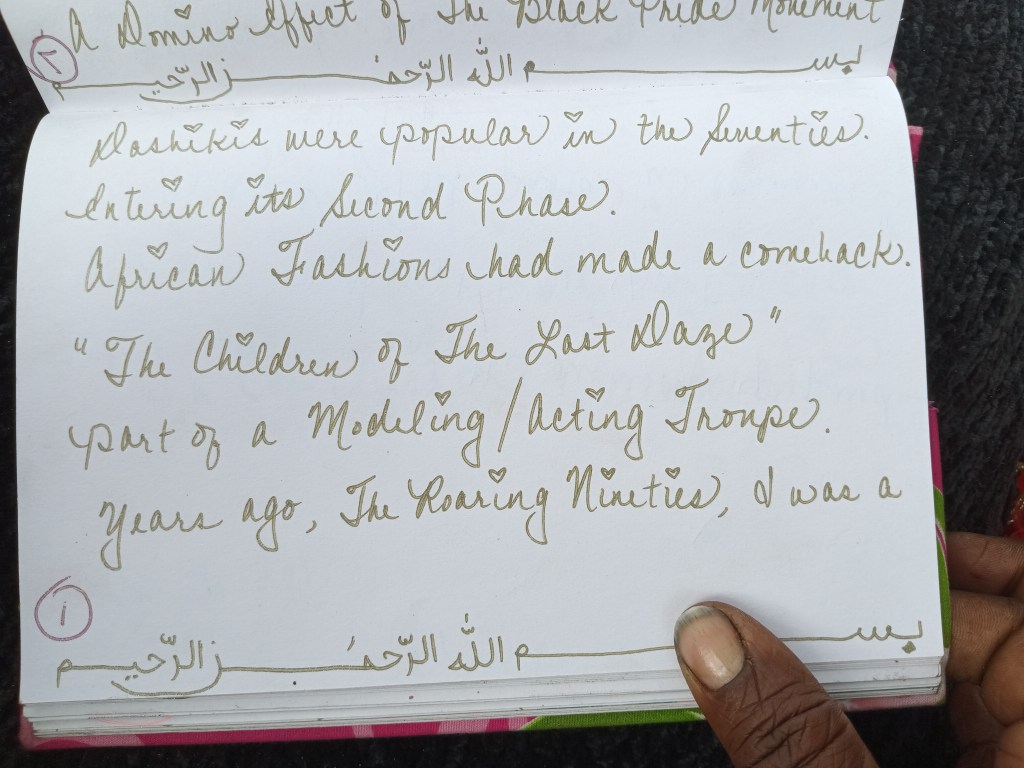 A Domino Effect of The Black Pride Movement
٢ بسم الله الرّحمٰن الرّحيم
Dashikis were popular in the Seventies.
Entering its Second Phase.
African Fashions had made a comeback.
"The Children of The Last Daze"
part of a Modeling/Acting Troupe.
Years ago, The Roaring Nineties, I was a
١
بسم الله الرّحمٰن الرّحيم